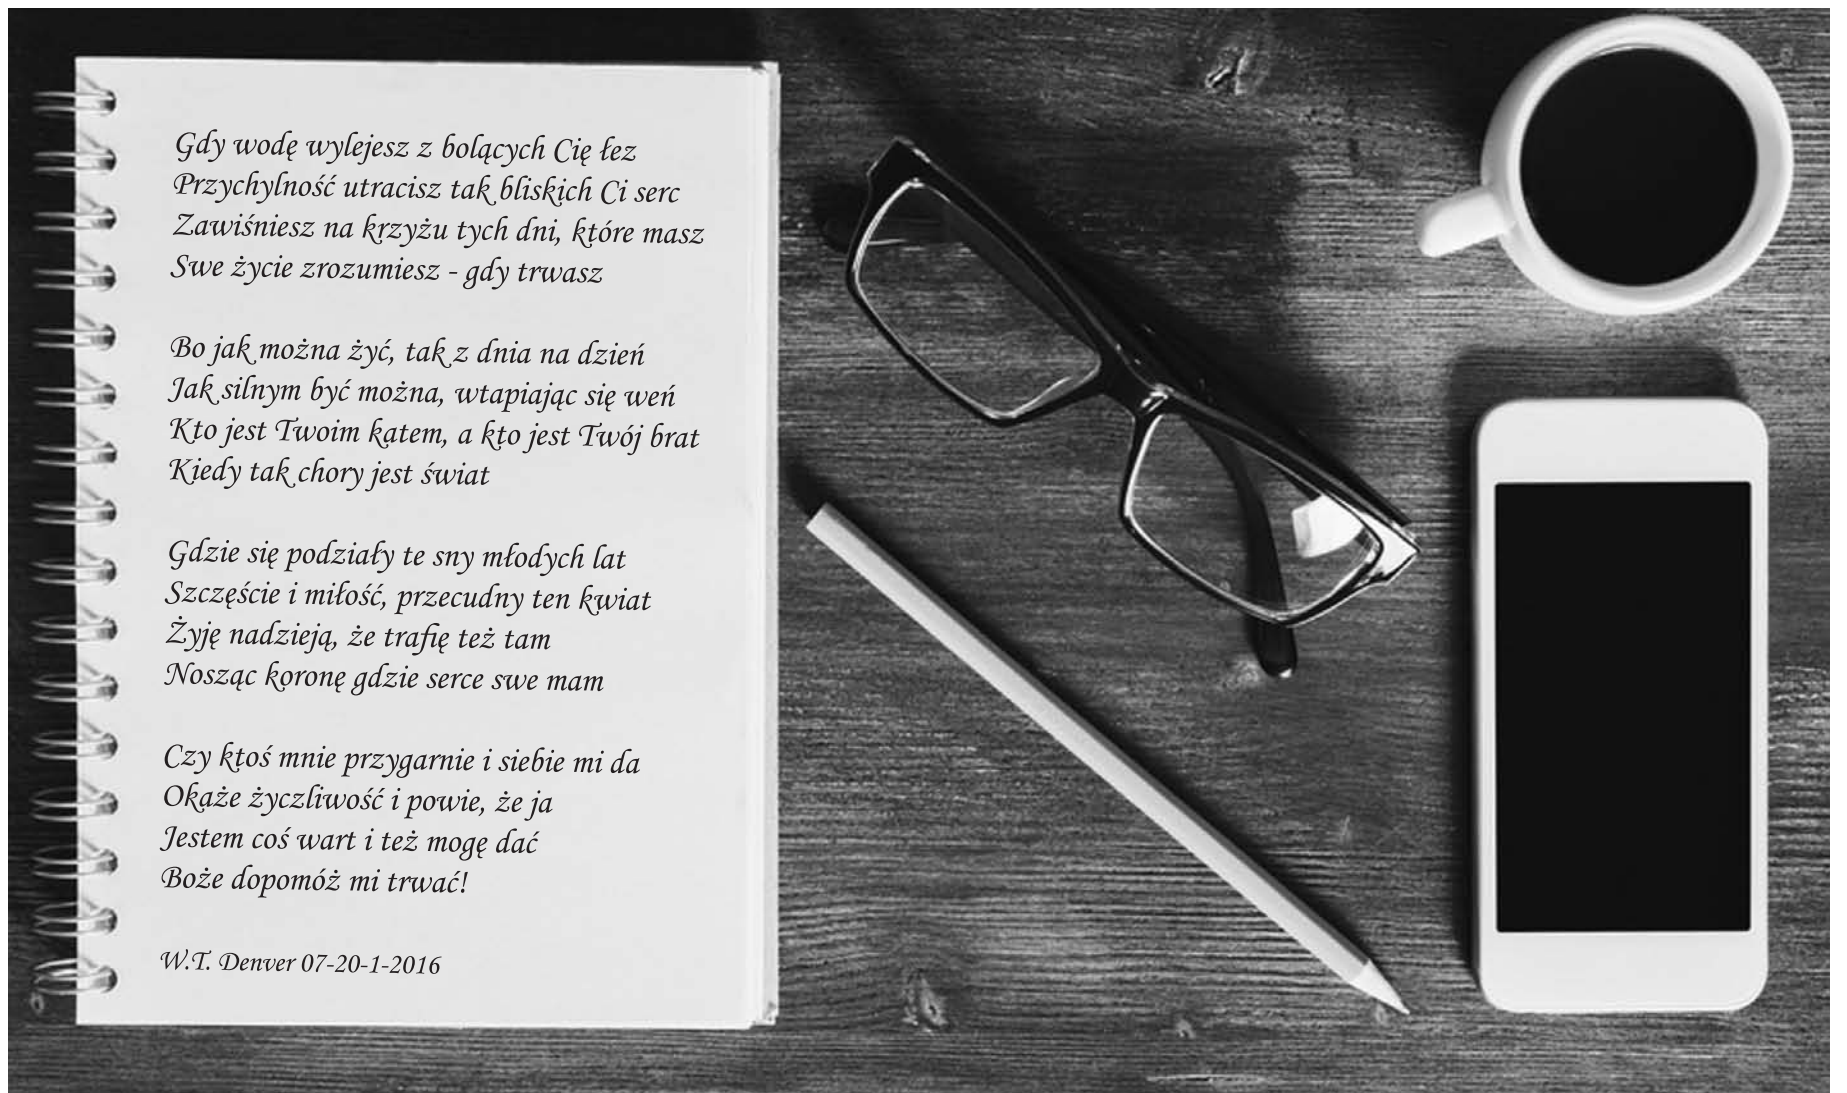 Gdy wodę wylejesz z bolących Cię łez
Przychylność utracisz tak bliskich Ci serc
Zawiśniesz na krzyżu tych dni, które masz
Swe życie zrozumiesz - gdy trwasz
Bo jak można żyć, tak z dnia na dzień
Jak silnym być można, wtapiając się weń
Kto jest Twoim katem, a kto jest Twój brat
Kiedy tak chory jest świat
Gdzie się podziały te sny młodych lat
Szczęście i miłość, przecudny ten kwiat
Żyję nadzieją, że trafię też tam
Nosząc koronę gdzie serce swe mam
Czy ktoś mnie przygarnie i siebie mi da
Okaże życzliwość i powie, że ja
Jestem coś wart i też mogę dać
Boże dopomóż mi trwać!
W.T. Denver 07-20-1-2016